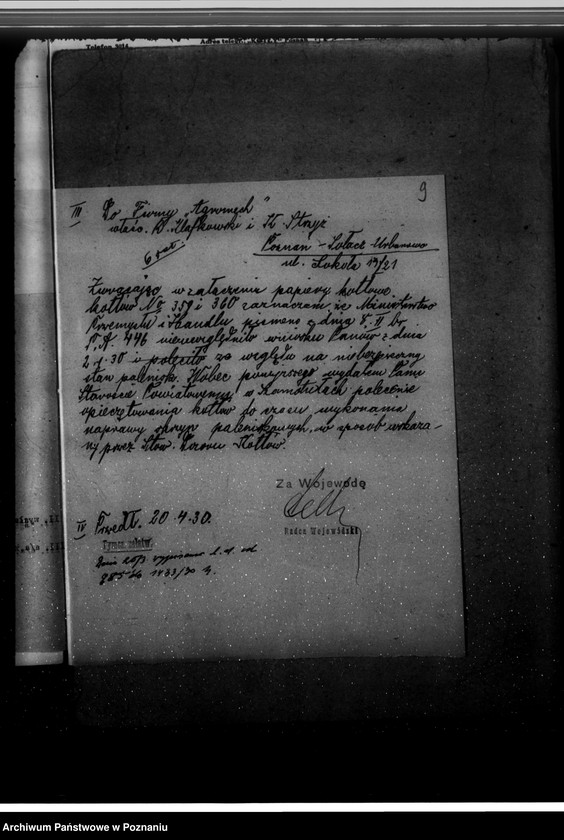 Telefon
9
III Do Firmy „Agromech"
właśc. Wł. Klafkowski i K. Stryż
Poznań - Sołacz Urbanowo
ul. Sokoła 19/21
Zwracając w załączeniu papiery kotłowe
kotłów No 359 i 360 zaznaczam że Ministerstwo
Przemysłu i Handlu pismem z dnia 8. II br.
P.A. 446 nieuwzględniło wniosku Panów z dnia
2.1.30 i poleciło ze względu na niebezpieczny
stan palenisk. Wobec powyższego wydałem Panu
Staroście Powiatowemu w Szamotułach polecenie
opieczętowania kotłów do czasu wykonania
naprawy skrzyń paleniskowych, w sposób wskaza-
ny przez Stow. Dozoru Kotłów.
Za Wojewodę
Radca Wojewódzki
IV Przedł. 20.4.30.
wypisano
1433/30
Archiwum Państwowe w Poznaniu